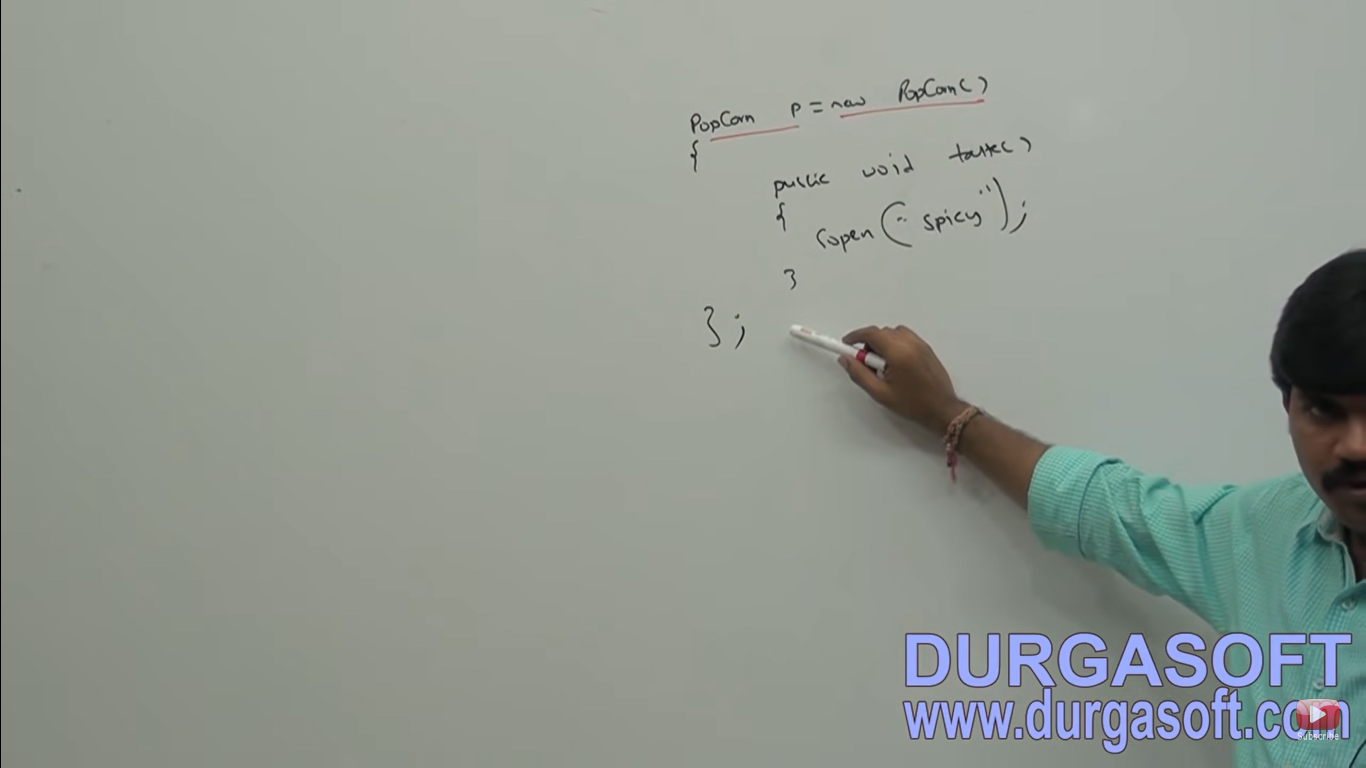 PopCorn p = new PopCorn()
{
public void taste()
{
sopen("spicy");
}
};
DURGASOFT
www.durgasoft.com
Subscribe